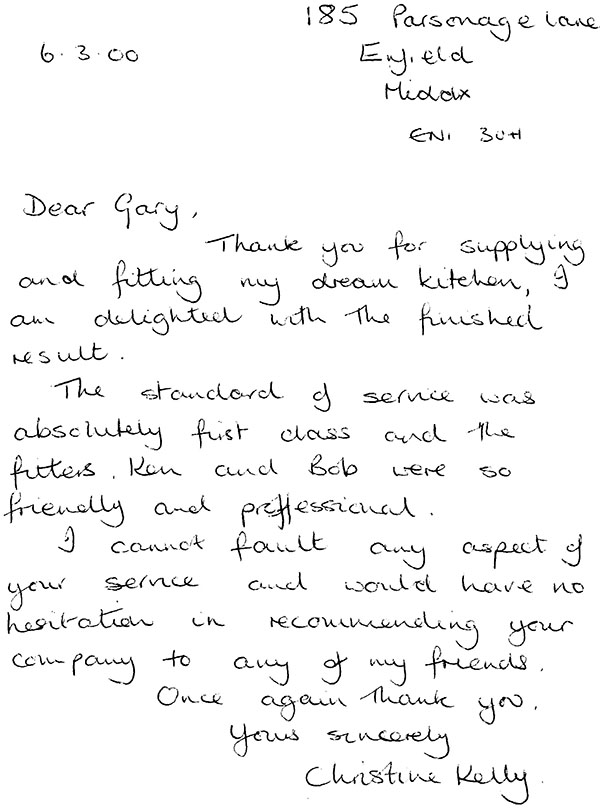 185 Parsonage Lane
6.3.00 Enfield
Middx
EN1 3UH
Dear Gary,
Thank you for supplying
and fitting my dream kitchen, I
am delighted with the finished
result.
The standard of service was
absolutely first class and the
fitters. Ken and Bob were so
friendly and proffessional.
I cannot fault any aspect of
your service and would have no
hesitation in recommending your
company to any of my friends.
Once again thank you.
Yours sincerely
Christine Kelly.